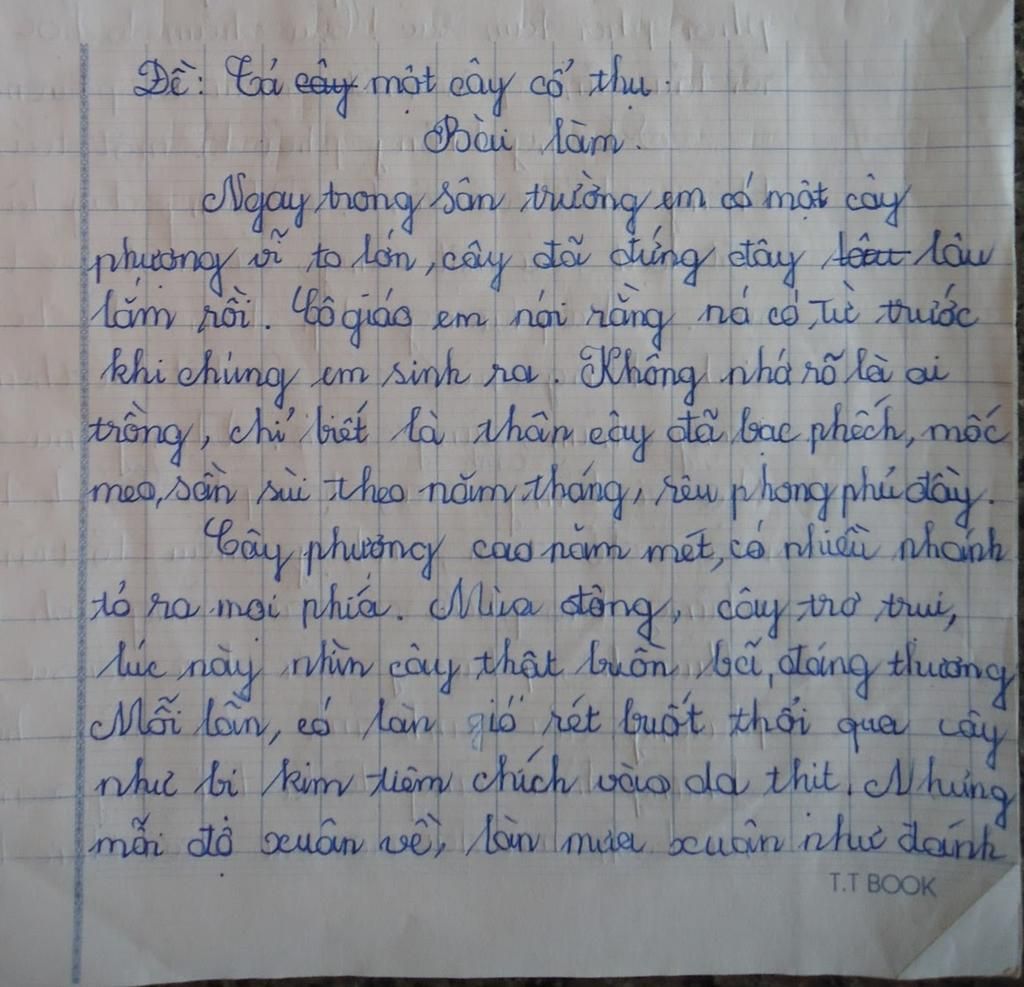 Đề: Tả cây một cây cổ thụ.
Bài làm.
Ngay trong sân trường em có một cây
phượng vĩ to lớn, cây đã đứng đây lâu lâu
lắm rồi. Cô giáo em nói rằng nó có từ trước
khi chúng em sinh ra. Không nhớ rõ là ai
trồng, chỉ biết là thân cây đã bạc phếch, mốc
meo, sần sùi theo năm tháng, rêu phong phủ đầy.
Cây phượng cao năm mét, có nhiều nhánh
tỏ ra mọi phía. Mùa đông, cây trơ trụi,
lúc này nhìn cây thật buồn bã, đáng thương
Mỗi lần, có làn gió rét buốt thổi qua cây
như bị kim tiêm chích vào da thịt. Nhưng
mỗi độ xuân về, làn mưa xuân như đánh
T.T BOOK